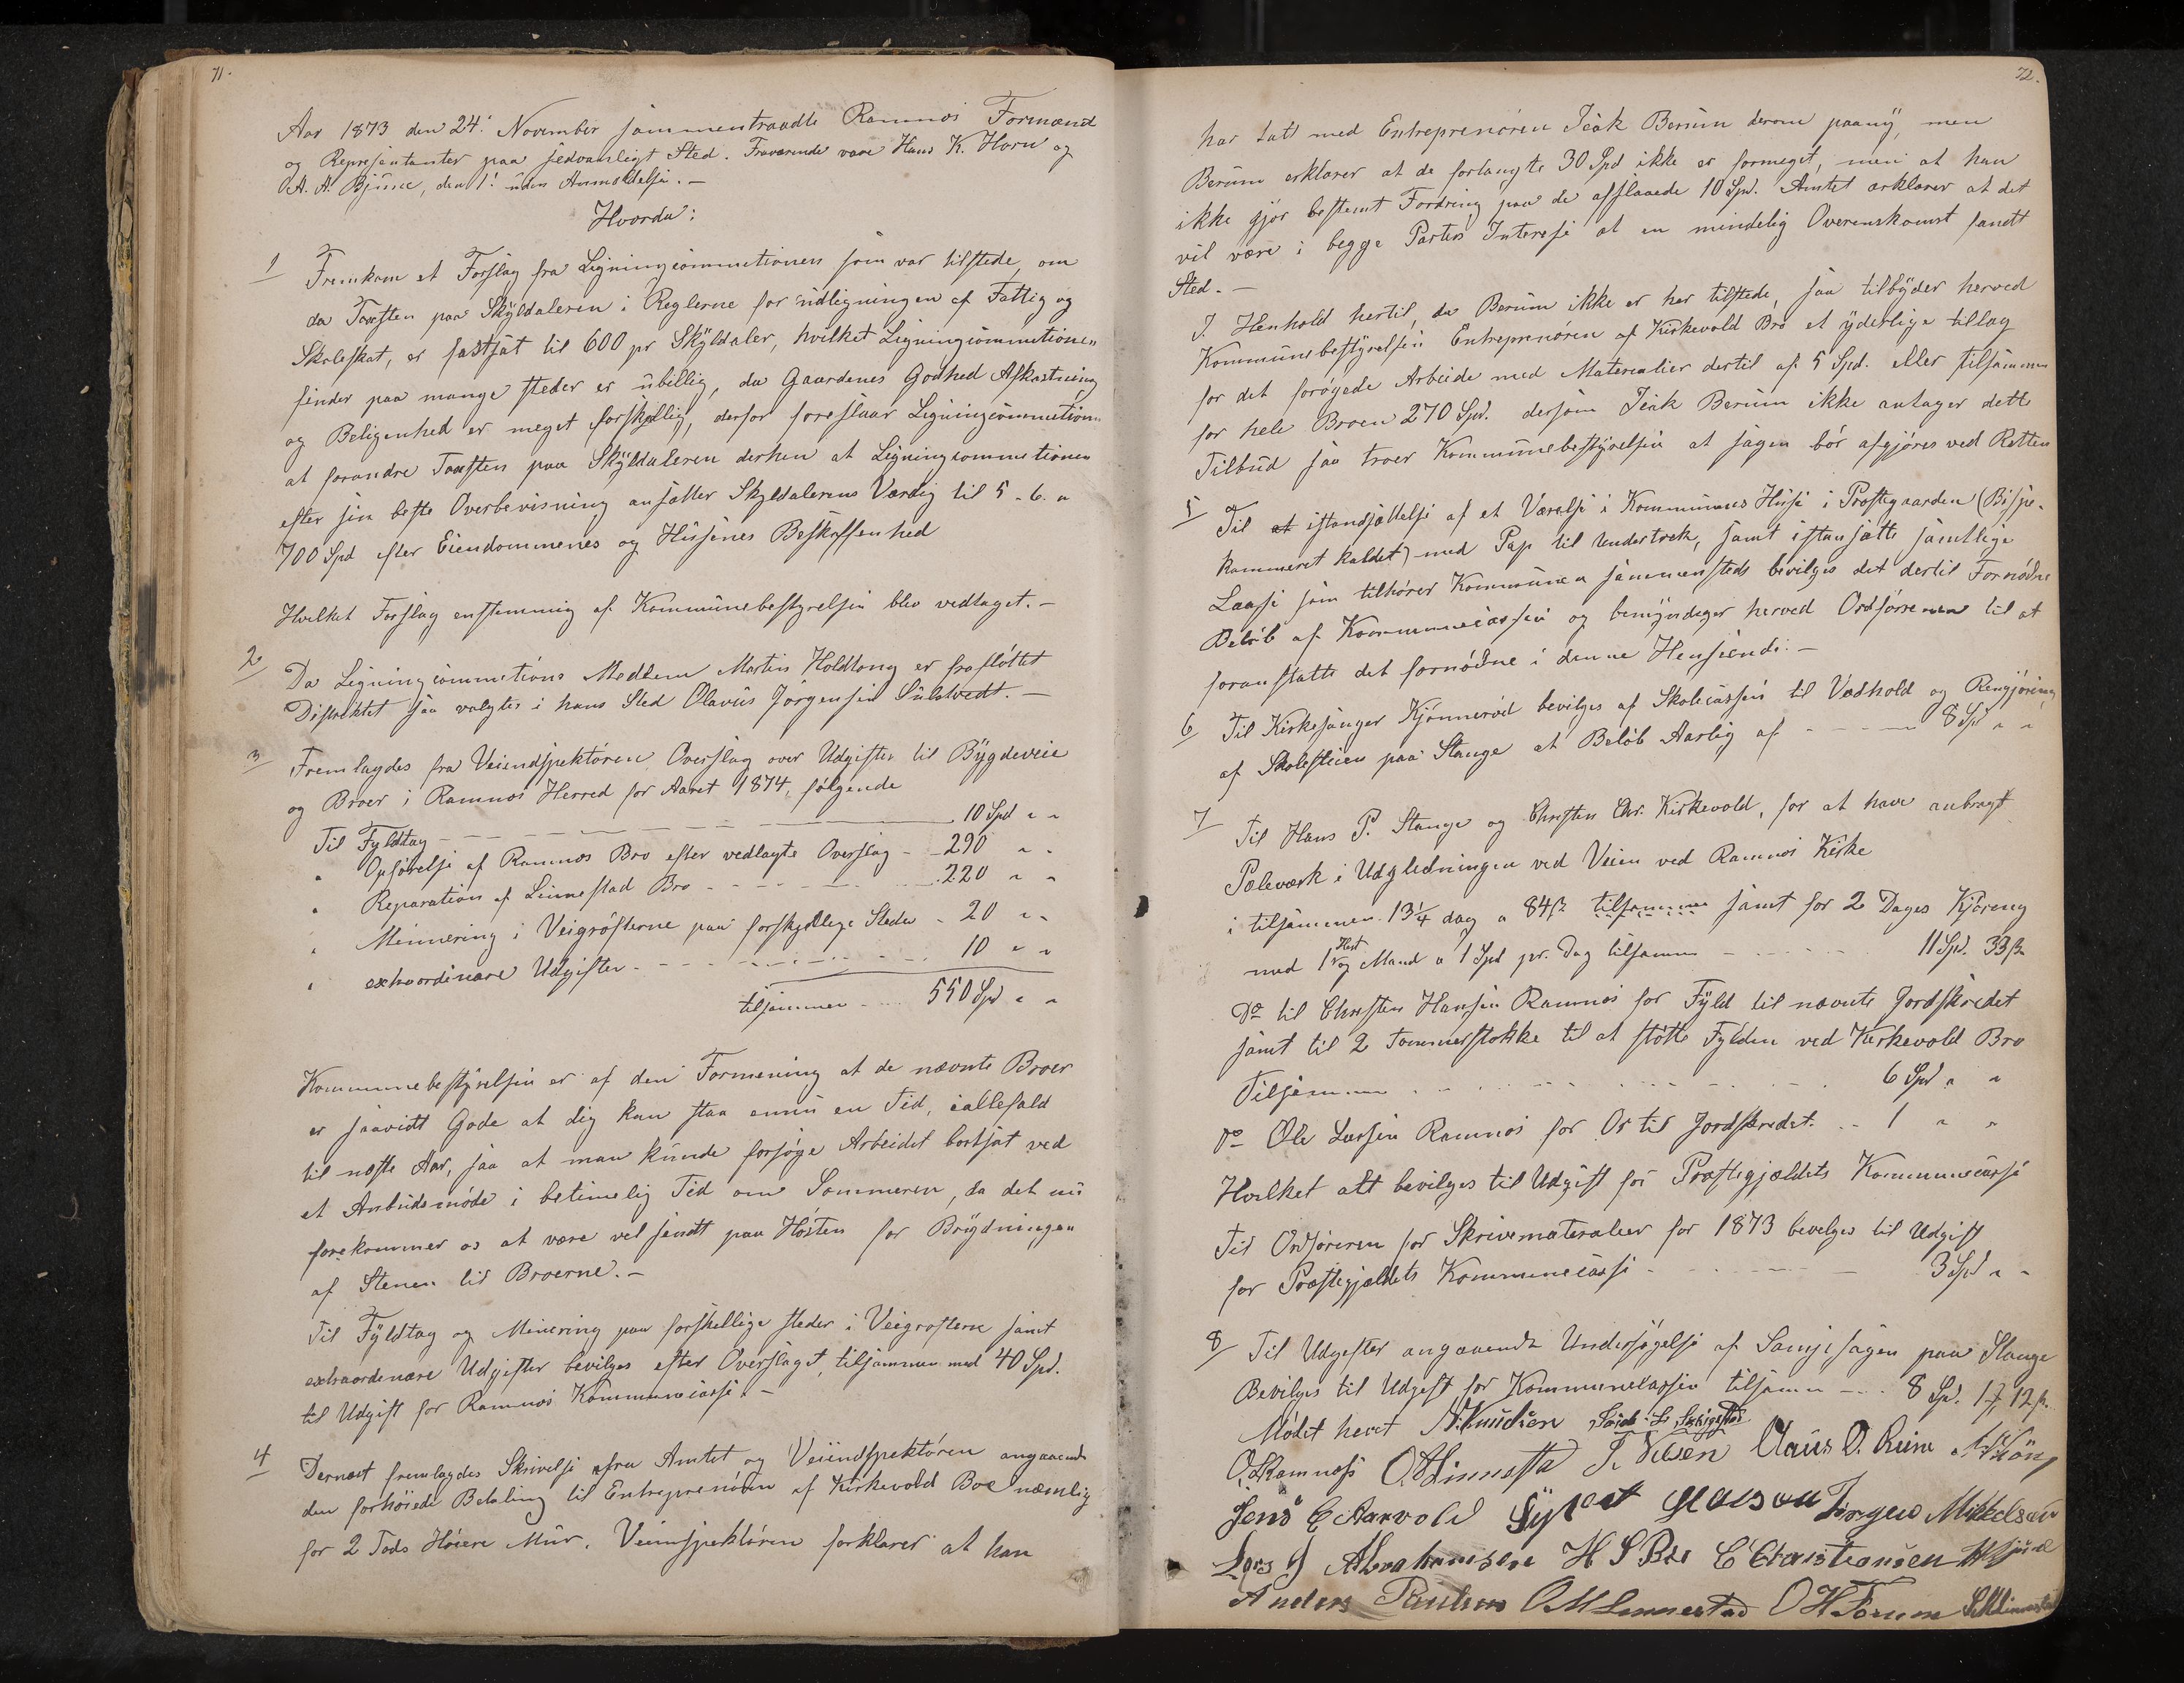 71.
Aar 1873 den 24! November sammentraadte Ramnæs Formænd
og Repræsentanter paa sædvanligt Sted. Fraværende vare Hans K. Horn og
A. A. Bjüne, den 1! uden Anmeldelse. –
Hvorda:
1/ Fremkom et Forslag fra Ligningcommitionen som var tilstede, om
da Taxten paa Skyldaleren i Reglerne for udligningen af Fattig og
Skoleskat, er fastsat til 600 pr Skyldaler, hvilket Ligningcommitionen
finder paa mange steder er übillig, da Gaardenes Godhed Afkastning
og Beligenhed er meget forskjellig, derfor foreslaar Ligningcommition
at forandre Taxten paa Skyldaleren derhen at Ligningcommitionen
efter sin beste Overbevisning ansætter Skyldalerens Værdig til 5 - 6 a
700 Spd efter Eiendommenes og Hüsenes Beskaffenhed
Hvilket Forslag enstemmig af Kommünebestyrelsen blev vedtaget. –
2/ Da Ligningcommitions Medlem Martin Holdtong er fraflöttet
Distriktet saa valgtes i hans Sted Olavüs Jörgensen Sülutvedt. –
3/ Fremlagdes fra Veiendspektören Overslag over Udgifter til Bÿgdeveie
og Broer i Ramnæs Herred for Aaret 1874, følgende
Til Fyldtag 10 Spd " "
" Opförelse af Ramnæs Bro efter vedlagte Overslag - 290 " "
" Reparation af Linnestad Bro 220 " "
" Minnering i Veigröfterne paa forskjellige Steder - 20 " "
" extraordinære Udgifter 10 " "
tilsammen 550 Spd " "
Kommunebestÿrelsen er af den Formening at de nævnte Broer
er saavidt Gode at dig kan staa ennü en Tid, iallefald
til næste Aar, saa at man künde forsøge Arbeidet bortsat ved
et Anbudsmöde i betimelig Tid om Sommeren, da det nü
forekommer os at være vel sendt paa Hösten for Brÿdningen
af Stenen til Broerne. –
Til Fÿldtag og Minering paa forskellige steder i Veigrøfterne samt
extraordenære Udgifter bevilges efter Overslaget, tilsammen med 40 Spd.
til Udgift for Ramnæs Kommunecasse. –
4/ Dernæst fremlagdes Skrivelse fra Amtet og Veiindspektören angaaende
den forhöiede Betaling til Entreprenören af Kirkevold Broe nemlig
for 2 Fods Höiere Mür. Veiinspektören forklarer at han
72.
har talt med Entreprenören Isak Berüm derom paanÿ, men
Berüm erklærer at de forlangte 30 Spd ikke er formeget, men at han
ikke gjör bestemt Fordring paa de afslaaede 10 Spd. Amtet erklærer at det
vil være i begge Parters Interesse at en mindelig Overenskomst fandt
Sted. –
I Henhold hertil, da Berüm ikke er her tilstede, saa tilbÿder herved
Kommünebestÿrelsen Entreprenören af Kirkevold Bro et ÿderlige tillæg
for det forögede Arbeide med Materialier dertil af 5 Spd. eller tilsammen
for hele Broen 270 Spd. dersom Isak Berüm ikke antager dette
Tilbud saa troer Kommünebestÿrelsen at sagen bör afgjöres ved Retten
5/ Til istandsættelse af et Værelse i Kommunens Hüse i Prestegaarden (Bispe-
kammeret kaldet) med Pap til Undertrek, samt istansætte samtlige
Laase som tilhörer Kommünen sammensteds bevilges det dertil Fornödne
Belöb af Kommunecassen og bemÿndiger herved Ordförreren til at
foranstalte det fornödne i denne Henseende. –
6/ Til Kirkesanger Kjönneröd bevilges af Skolecassen til Vedhold og Rengjöring
af Skolestuen paa Stange et Belöb Aarlig af 8 Spd " "
7/ Til Hans P. Stange og Christen Chr. Kirkevold, for at have anbragt
Pæleværk i Udglidningen ved Veien ved Ramnæs Kirke
i tilsammen 13¼ dag a 84 ß tilsammen samt for 2 Dages Kjöreng
med 1 Hest og Mand a 1 Spd pr. Dag tilsammen 11 Spd. 33 ß
Do til Christen Hansen Ramnæs for Fÿld til nævnte Jordskredet
samt til 2 Tømmerstokke til at stötte Fylden ved Kirkevold Bro
Tilsammen 6 Spd " "
Do Ole Larsen Ramnæs for Os til Jordskredet. 1 " "
Hvilket alt bevilges til Udgift for Præstegjældets Kommunecasse
Til Ordföreren for Skrivematerialier for 1873 bevelges til Udgift
for Præstegjeldets Kommunecasse 3 Spd " "
8/ Til Udgifter angaaende Undersögelse af Samjesagen paa Stange
Bevilges til Udgift for Kommunecassen tilsammen 8 Spd. 1 ƒ 12 ß.
Mödet hevet N. Knudsen
O. Ramnæss O. Linnesta Claus O. Reine
Jens E Aarvold Sÿvert Jörgen Mikkelsen
Lars J Abrahamsen H S Bøe C Christiansen
Anders Paulsen O M Linnestad O H Forum